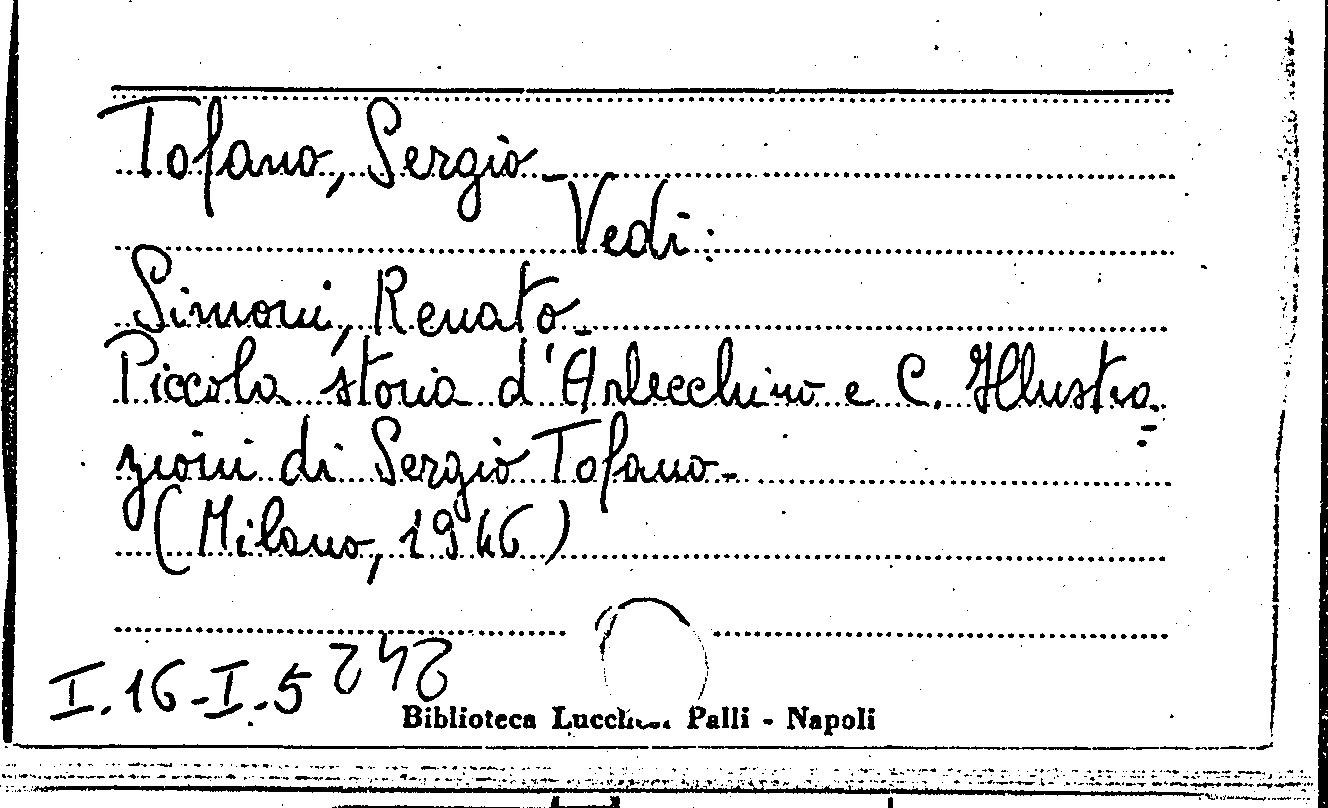 Tofano, Sergio -
Vedi:
Simoni, Renato -
Piccola storia d'Arlecchino e C. Illustra=
zioni di Sergio Tofano -
(Milano, 1946)
I.16-I.5
Biblioteca Palli - Napoli